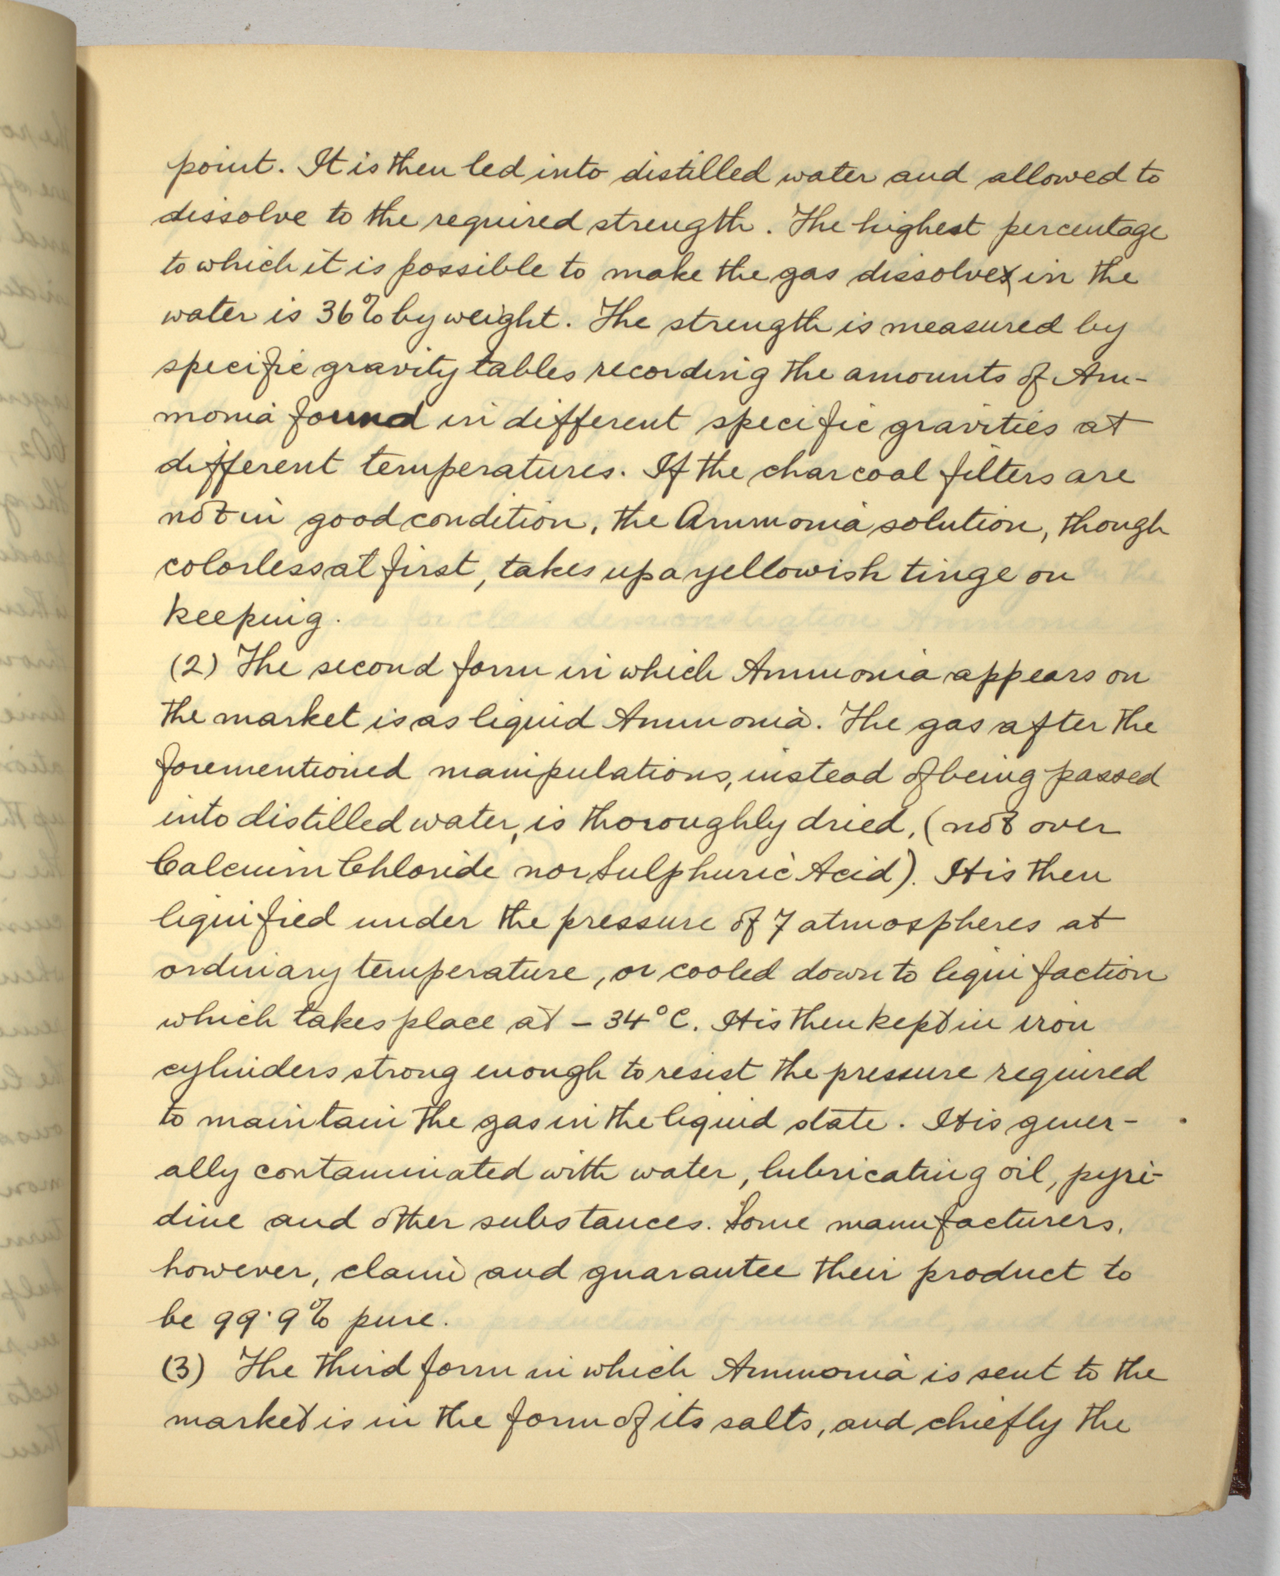 point. It is then led into distilled water and allowed to
dissolve to the required strength. The highest percentage
to which it is possible to make the gas dissolve in the
water is 36% by weight. The strength is measured by
specific gravity tables recording the amounts of Am-
monia found in different specific gravities at
different temperatures. If the charcoal filters are
not in good condition, the Ammonia solution, though
colorless at first, takes up a yellowish tinge on
keeping.
(2) The second form in which Ammonia appears on
the market is as liquid Ammonia. The gas after the
forementioned manipulations, instead of being passed
into distilled water, is thoroughly dried, (not over
Calcium Chloride nor Sulphuric Acid). It is then
liquified under the pressure of 7 atmospheres at
ordinary temperature, or cooled down to liquifaction
which takes place at - 34°C. It is then kept in iron
cylinders strong enough to resist the pressure required
to maintain the gas in the liquid state. It is gener-
ally contaminated with water, lubricating oil, pyri-
dine and other substances. Some manufacturers,
however, claim and guarantee their product to
be 99.9% pure.
(3) The third form in which Ammonia is sent to the
market is in the form of its salts, and chiefly the